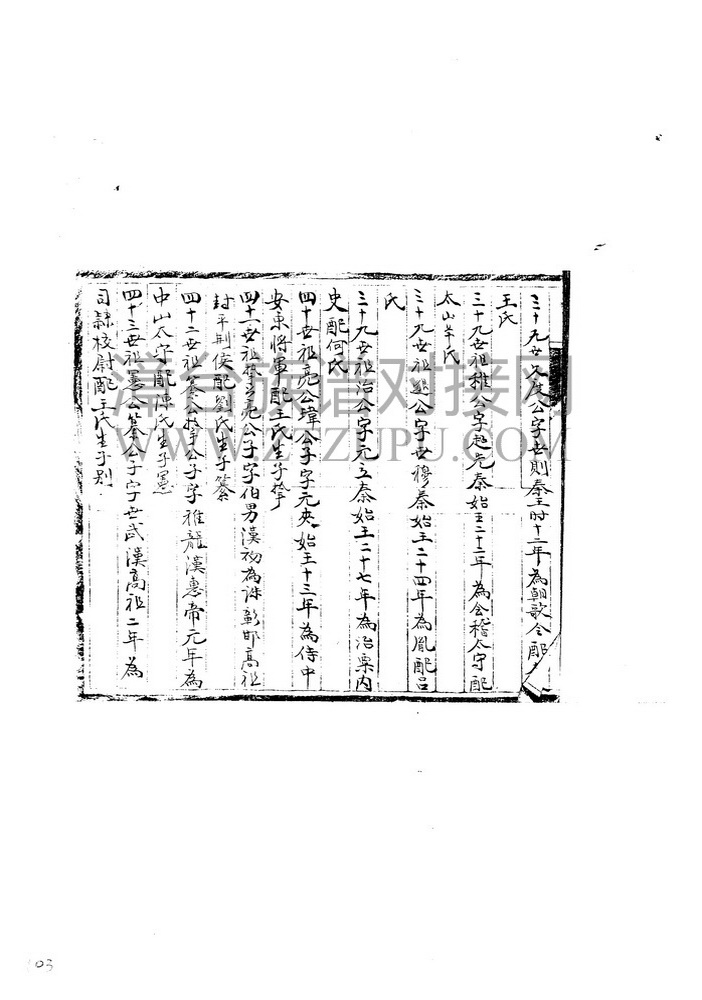 三十九世度公字世則秦王时十二年為朝歌令配
王氏
三十九世祖稚公字趙元秦始王二十二年為会稽太守配
太山羊氏
三十九世祖遜公字世穆秦始王二十四年為胤配呂
氏
三十九世祖治公字元立秦始王二十七年為治粟內
史配何氏
四十世祖亮公瑋公子字元夾始王十三年為侍中
安東將軍配王氏生子
四十一世祖公亮公子字伯男漢初為誅彰邯高祖
封平荆侯配劉氏生子纂
四十二世祖纂公公子字雅龍漢惠帝元年為
中山太守配陳氏生子憲
四十三世祖憲公纂公子字世武漢高祖二年為
司隸校尉配王氏生子别
漳台族谱对接网
WWW.ZTZUPU.COM
03